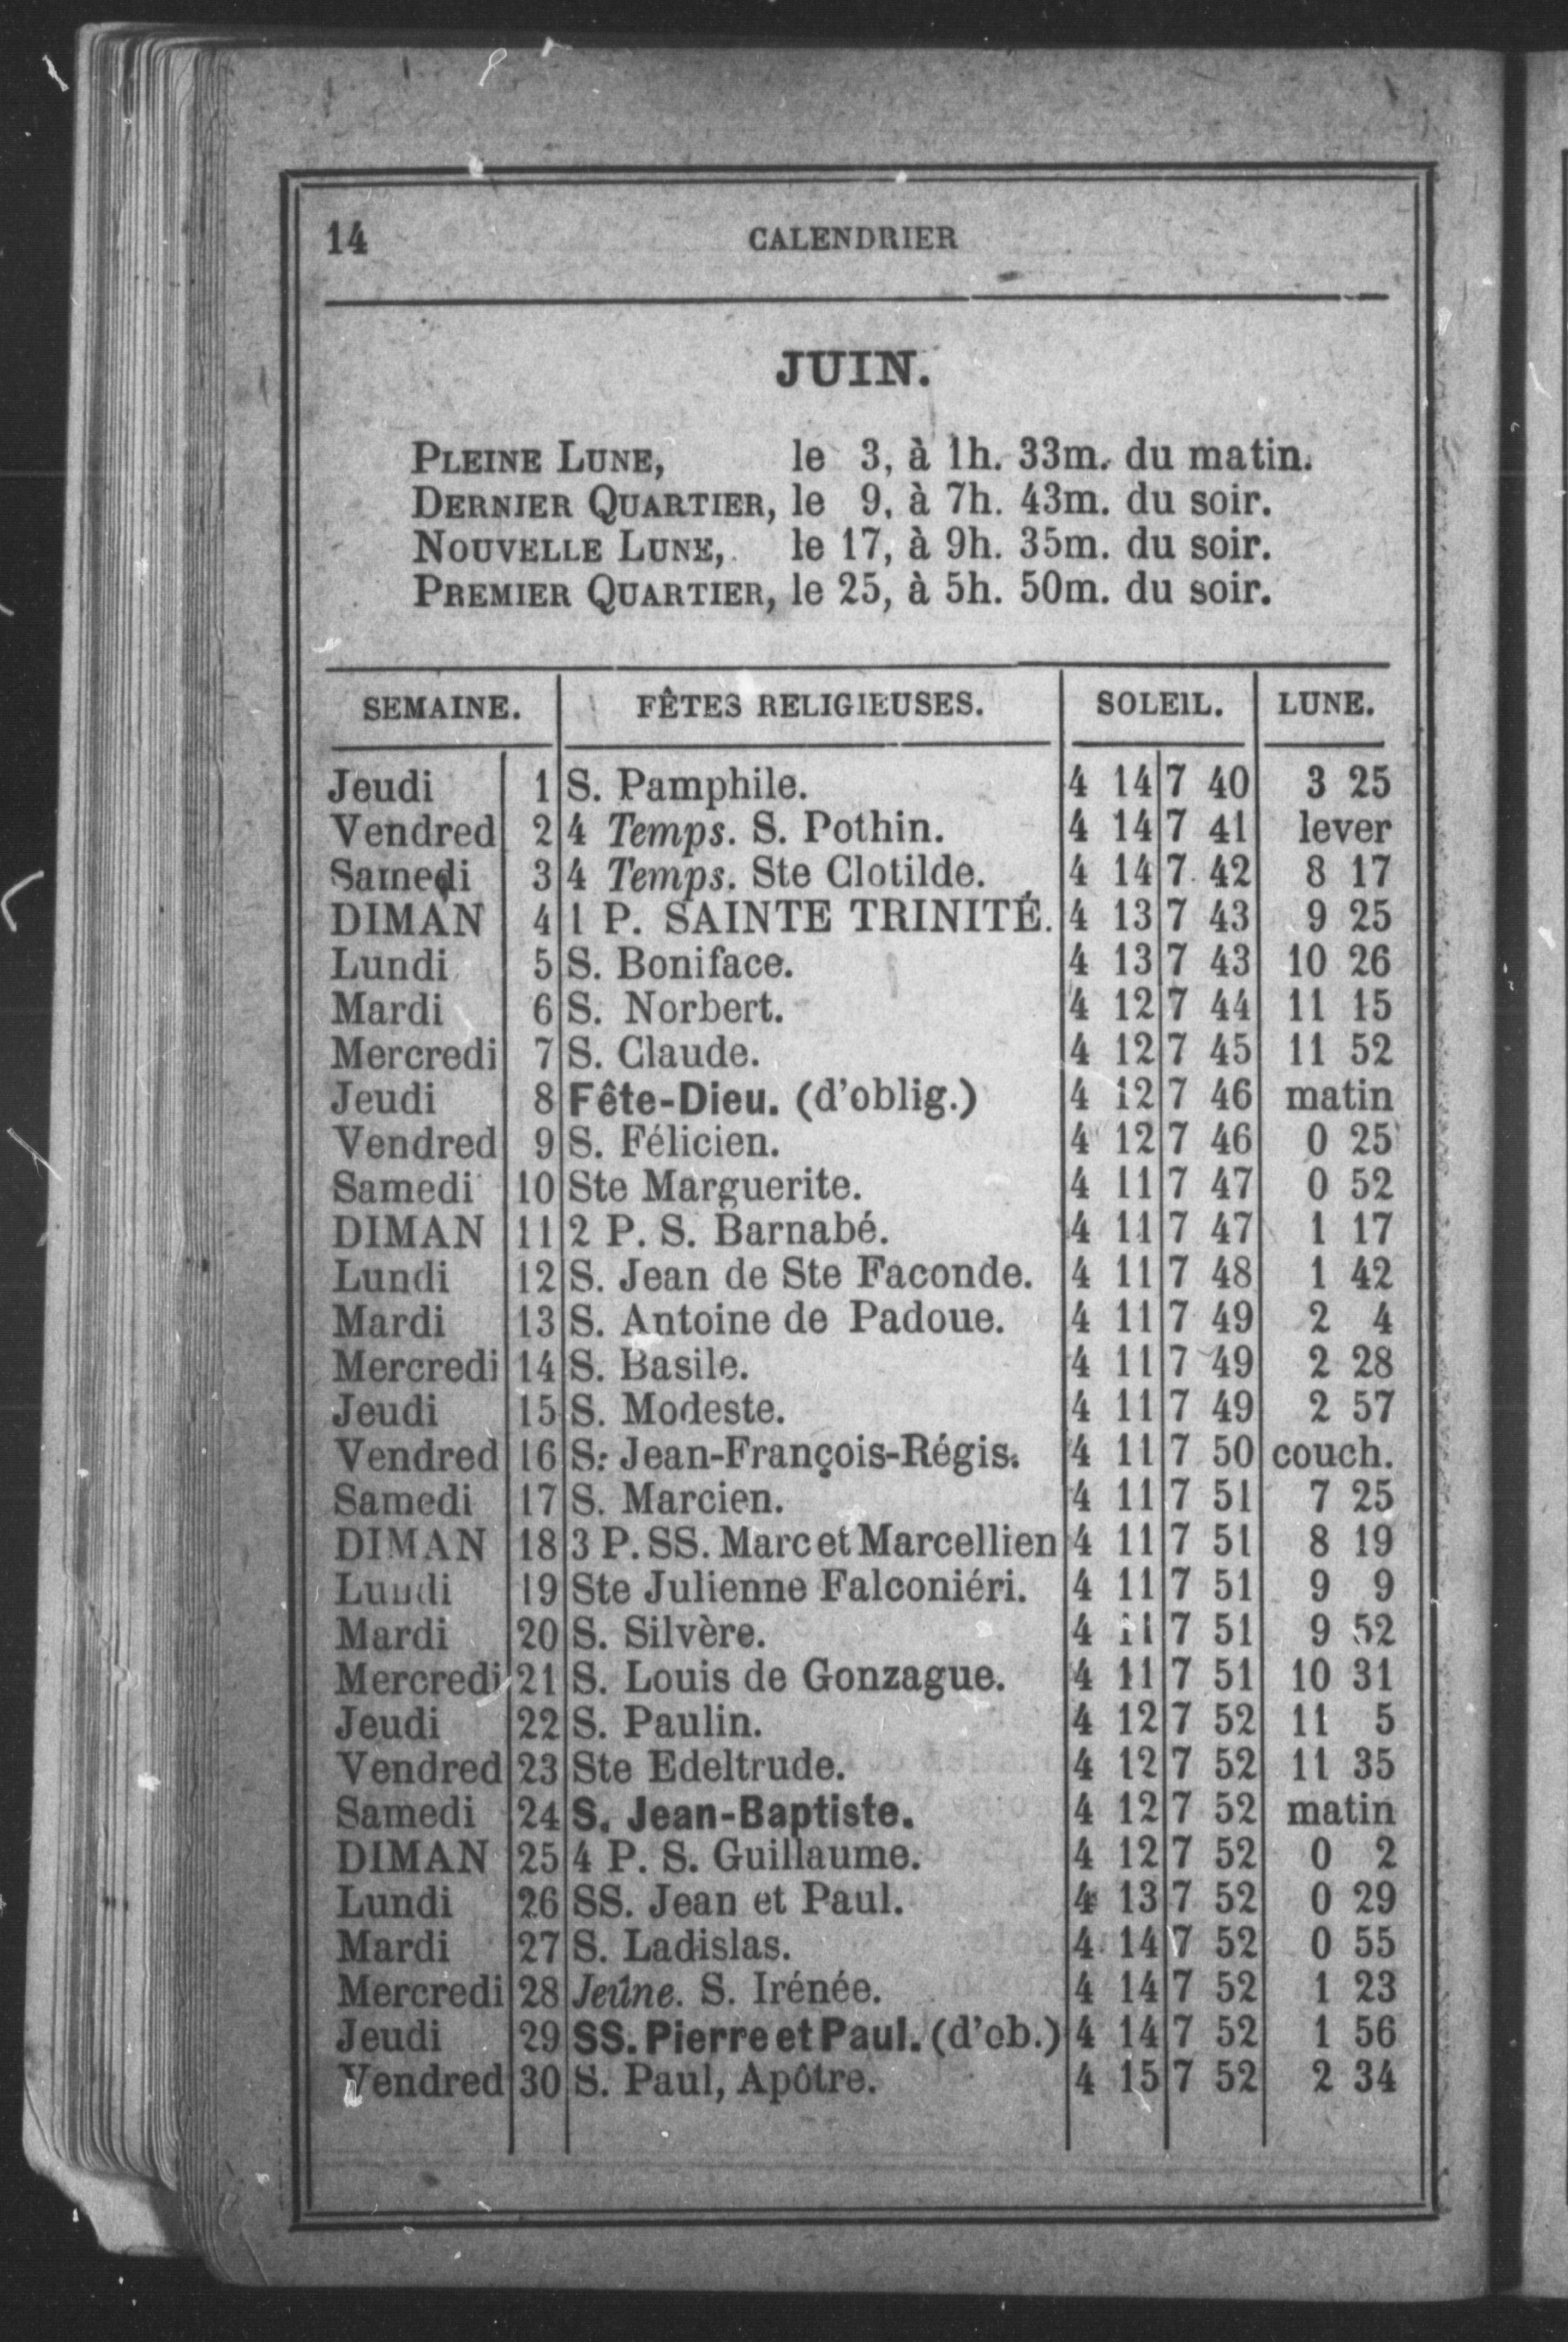 14 CALENDRIER
JUIN.
PLEINE LUNE, le 3, à 1h. 33m. du matin.
DERNIER QUARTIER, le 9, à 7h. 43m. du soir.
NOUVELLE LUNE, le 17, à 9h. 35m. du soir.
PREMIER QUARTIER, le 25, à 5h. 50m. du soir.
SEMAINE. FÊTES RELIGIEUSES. SOLEIL. LUNE.
Jeudi 1 S. Pamphile. 4 14 7 40 3 25
Vendred 2 4 Temps. S. Pothin. 4 14 7 41 lever
Samedi 3 4 Temps. Ste Clotilde. 4 14 7 42 8 17
DIMAN 4 1 P. SAINTE TRINITÉ. 4 13 7 43 9 25
Lundi 5 S. Boniface. 4 13 7 43 10 26
Mardi 6 S. Norbert. 4 12 7 44 11 15
Mercredi 7 S. Claude. 4 12 7 45 11 52
Jeudi 8 Fête-Dieu. (d'oblig.) 4 12 7 46 matin
Vendred 9 S. Félicien. 4 12 7 46 0 25
Samedi 10 Ste Marguerite. 4 11 7 47 0 52
DIMAN 11 2 P. S. Barnabé. 4 11 7 47 1 17
Lundi 12 S. Jean de Ste Faconde. 4 11 7 48 1 42
Mardi 13 S. Antoine de Padoue. 4 11 7 49 2 4
Mercredi 14 S. Basile. 4 11 7 49 2 28
Jeudi 15 S. Modeste. 4 11 7 49 2 57
Vendred 16 S. Jean-François-Régis. 4 11 7 50 couch.
Samedi 17 S. Marcien. 4 11 7 51 7 25
DIMAN 18 3 P. SS. Marc et Marcellien 4 11 7 51 8 19
Lundi 19 Ste Julienne Falconiéri. 4 11 7 51 9 9
Mardi 20 S. Silvère. 4 11 7 51 9 52
Mercredi 21 S. Louis de Gonzague. 4 11 7 51 10 31
Jeudi 22 S. Paulin. 4 12 7 52 11 5
Vendred 23 Ste Edeltrude. 4 12 7 52 11 35
Samedi 24 S. Jean-Baptiste. 4 12 7 52 matin
DIMAN 25 4 P. S. Guillaume. 4 12 7 52 0 2
Lundi 26 SS. Jean et Paul. 4 13 7 52 0 29
Mardi 27 S. Ladislas. 4 14 7 52 0 55
Mercredi 28 Jeûne. S. Irénée. 4 14 7 52 1 23
Jeudi 29 SS. Pierre et Paul. (d'ob.) 4 14 7 52 1 56
Vendred 30 S. Paul, Apôtre. 4 15 7 52 2 34